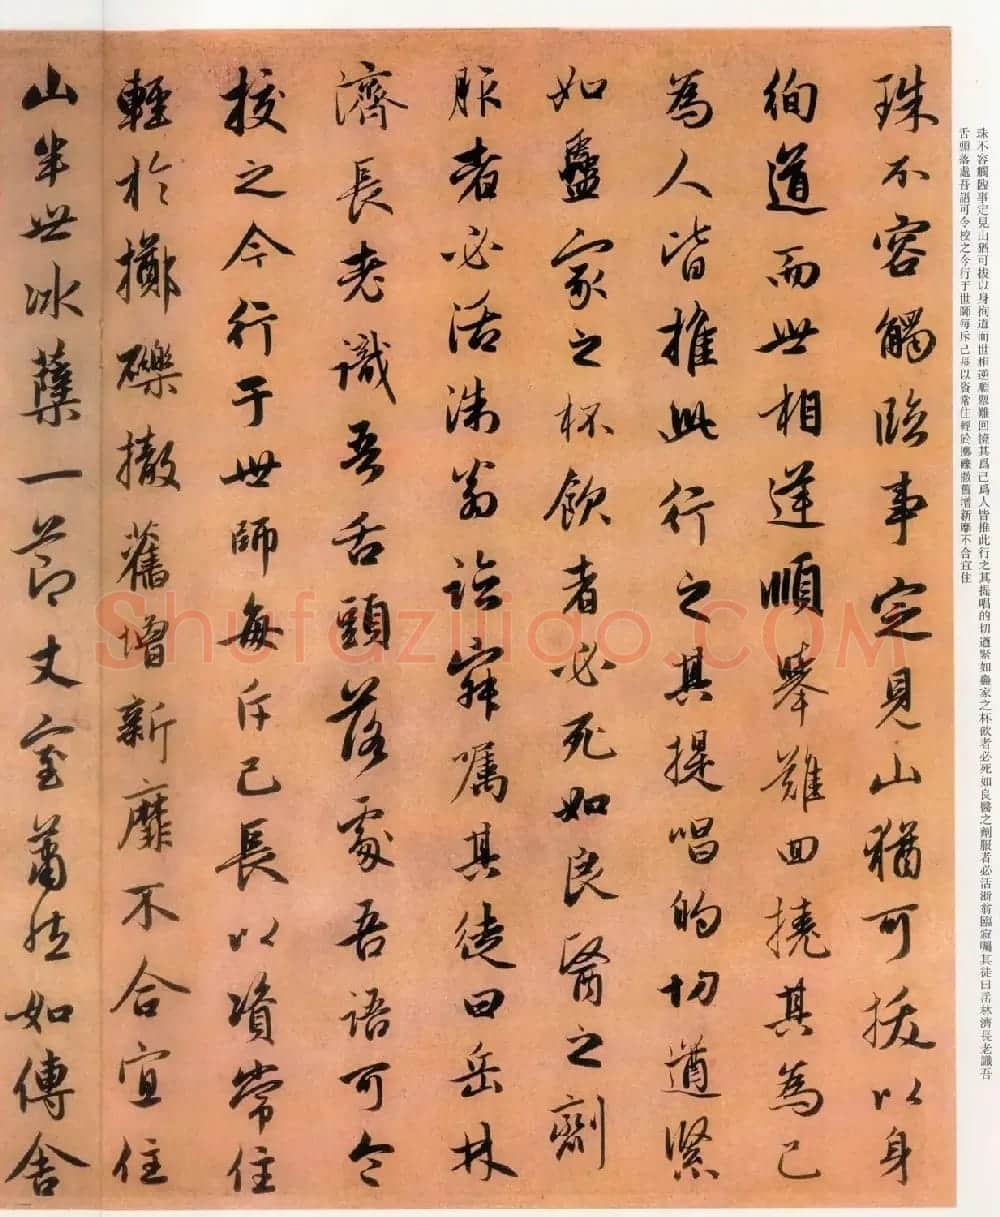 珠不容觸臨事定見山猶可拔以身
徇道而世相逆順舉難回撓其為己
為人皆推此行之其提唱的切遒緊
如蠱家之杯飲者必死如良醫之劑
服者必活浙翁臨寂囑其徒曰岳林
濟長老識吾舌頭落處吾語可令
校之今行于世師每斥己長以資常住
輕於擲礫撤舊增新靡不合宜住
山半世冰蘗一節丈室蕭然如傳舍
珠不容觸臨事定見山猶可拔以身徇道而世相逆順舉難回撓其爲己爲人皆推此行之其提唱的切遒緊如蠱家之杯飲者必死如良醫之劑服者必活浙翁臨寂囑其徒曰岳林濟長老識吾
舌頭落處吾語可令校之今行于世師每斥己長以資常住輕於擲礫撤舊增新靡不合宜住
Shufaziliao.COM